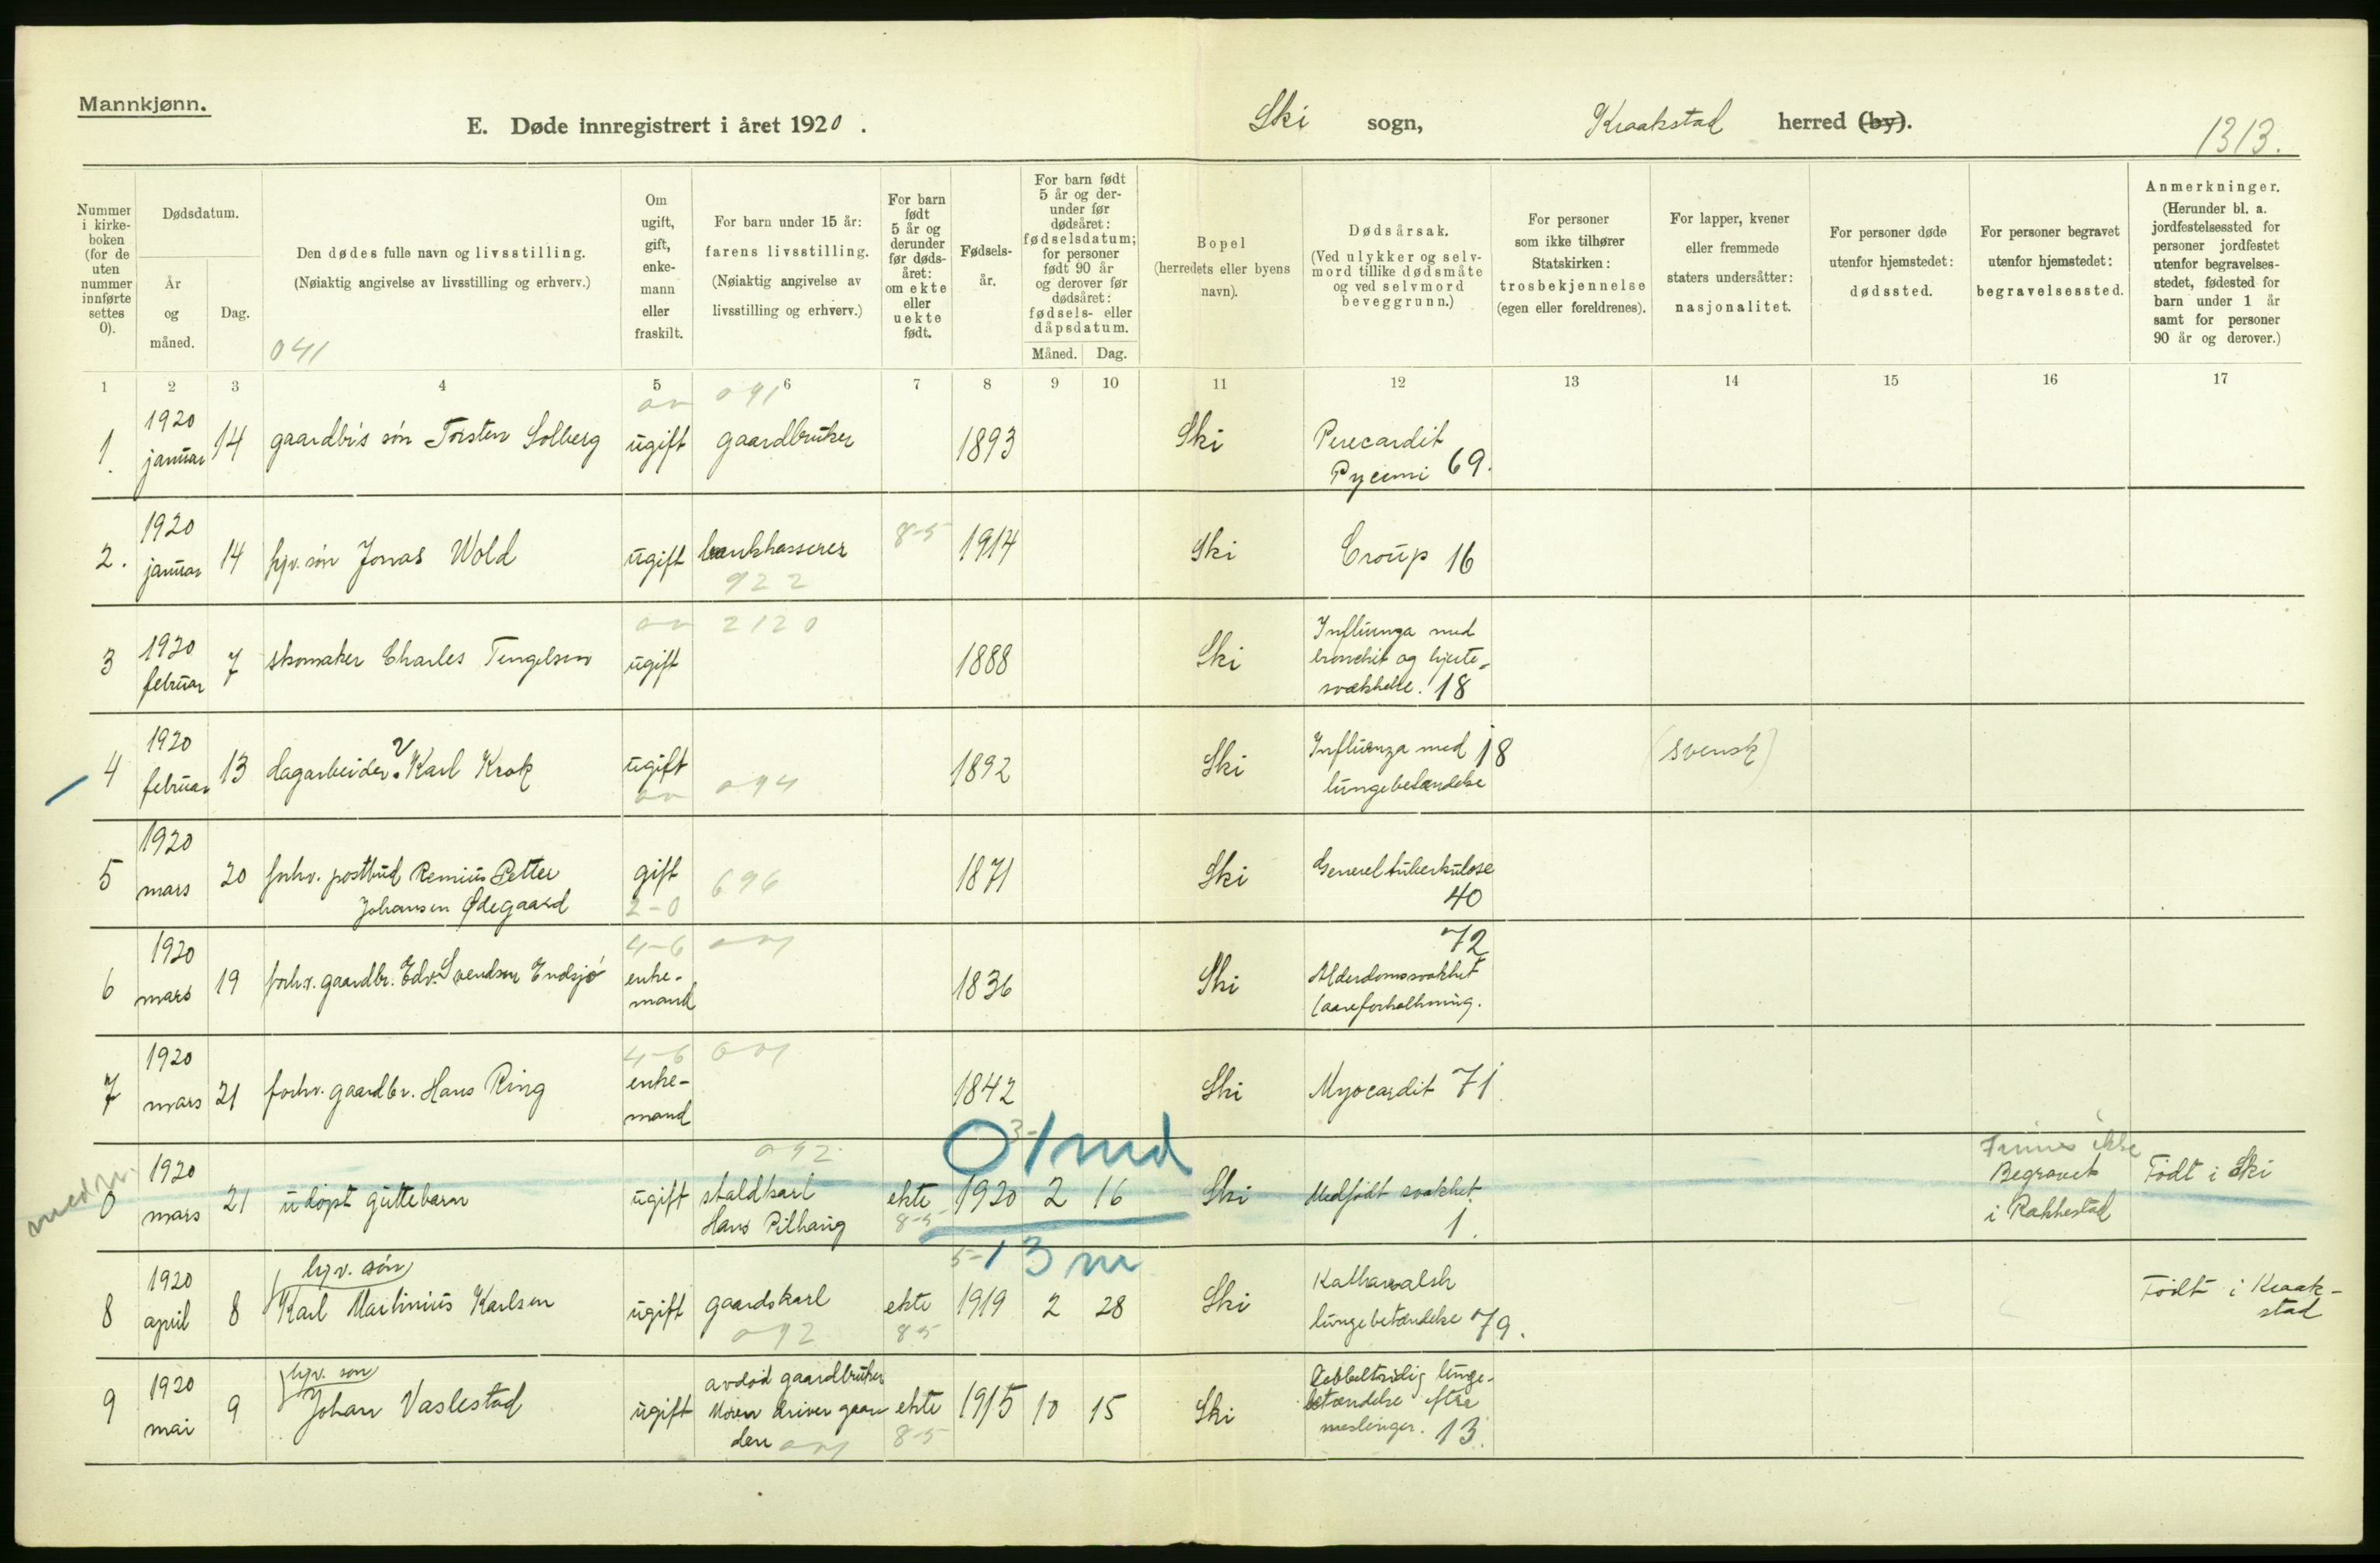 Mannkjønn.
E. Døde innregistrert i året 1920. Ski sogn, Kraakstad herred (by).
1313.
Nummer i kirkeboken (for de uten nummer innførte settes 0).
Dødsdatum.
År og måned.
Dag.
Den dødes fulle navn og livsstilling.
(Nøiaktig angivelse av livsstilling og erhverv.)
041
Om ugift, gift, enkemann eller fraskilt.
For barn under 15 år:
farens livsstilling.
(Nøiaktig angivelse av livsstilling og erhverv.)
For barn født 5 år og derunder før dødsåret: om ekte eller uekte født.
Fødselsår.
For barn født 5 år og derunder før dødsåret: fødselsdatum; for personer født 90 år og derover før dødsåret: fødsels- eller dåpsdatum.
Måned. Dag.
Bopel
(herredets eller byens navn).
Dødsårsak.
(Ved ulykker og selvmord tillike dødsmåte og ved selvmord beveggrunn.)
For personer som ikke tilhører Statskirken:
trosbekjennelse
(egen eller foreldrenes).
For lapper, kvener eller fremmede staters undersåtter:
nasjonalitet.
For personer døde utenfor hjemstedet:
dødssted.
For personer begravet utenfor hjemstedet:
begravelsessted.
Anmerkninger.
(Herunder bl. a. jordfestelsessted for personer jordfestet utenfor begravelsesstedet, fødested for barn under 1 år samt for personer 90 år og derover.)
1 2 3 4 5 6 7 8 9 10 11 12 13 14 15 16 17
091
1. 1920 januar 14 gaardbr's søn Torsten Solberg ugift gaardbruker 1893 Ski Perecardit Pyemi 69.
2. 1920 januar 14 hjv. søn Jonas Wold ugift bankkasserer 922 8-5 1914 Ski Croup 16
2120
3 1920 februar 7 skomaker Charles Tengelsen ugift 1888 Ski Influenza med bronchit og hjertesvækkelse. 18
4 1920 februar 13 dagarbeider? Karl Krok ugift 094 1892 Ski Influenza med lungebetændelse 18 (svensk)
5 1920 mars 20 forhv. postbud Remius Petter Johansen Ødegaard gift 2-0 696 1871 Ski Generel tuberkulose 40
6 1920 mars 19 forhv. gaardbr. Edv. Svendsen Endsjø 4-6 enkemand 1836 Ski 72 Alderdomssvakhet (aareforkalkning.
7 1920 mars 21 forhv. gaardbr. Hans Ring 4-6 enkemand 1842 Ski Myocardit 71.
0 1 md
092
0 1920 mars 21 udøpt guttebarn ugift staldkarl Hans Pilhaug ekte 8-5 1920 2 16 Ski Medfødt svakhet 1. Finnes ikke Begravet i Rakkestad Født i Ski
13 m
8 1920 april 8 hjv. søn Karl Martinius Karlsen ugift gaardskarl 092 ekte 85 1919 2 28 Ski Katharralsk lungebetændelse 79. Født i Kraakstad
9 1920 mai 9 hjv. søn Johan Vaslestad ugift avdød gaardbruker Moren driver gaarden ekte 8-5 1915 10 15 Ski Dobbeltsidig lungebetændelse efter meslinger. 13.